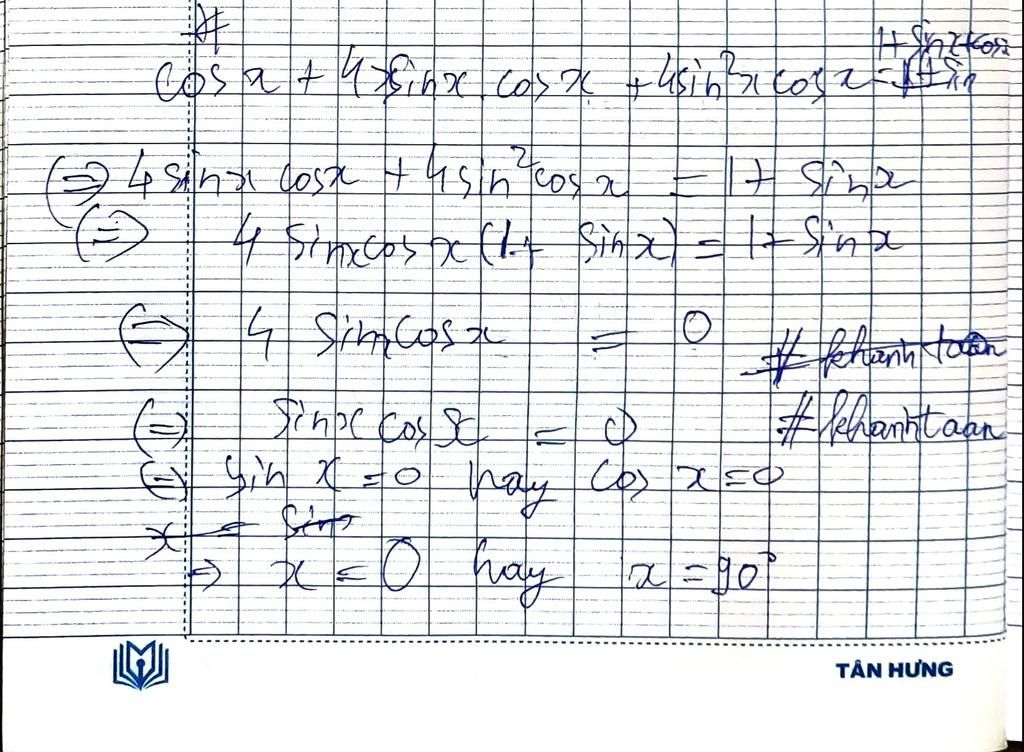 #
1 + sin x + cos x
cos x + 4 sin x . cos x + 4 sin² x cos x = 1 + sin
(=) 4 sin x cos x + 4 sin² cos x = 1 + sin x
(=) 4 sin x cos x (1 + sin x) = 1 + sin x
(=) 4 sin x cos x = 0
# khanh toan
(=) sin x cos x = 0
# khanhtaan
(=) sin x = 0 hay cos x = 0
x = sin
=> x = 0 hay x = 90°
TÂN HƯNG